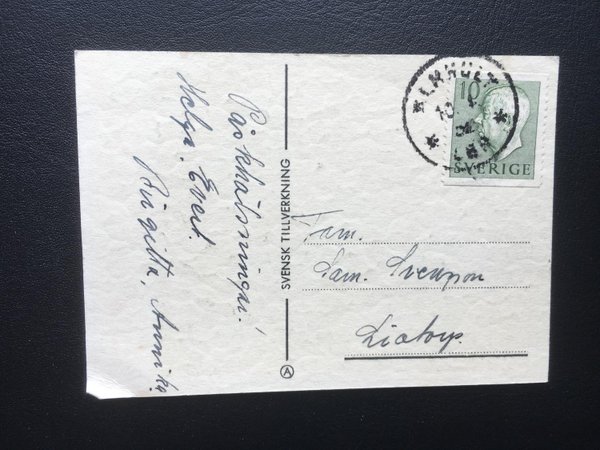 Påskhälsningar!
Helge. Evert.
Birgitta, Annika.
SVENSK TILLVERKNING
A
ÄLMHULT
10
SVERIGE
Fam.
Sam. Svensson
Liatorp.